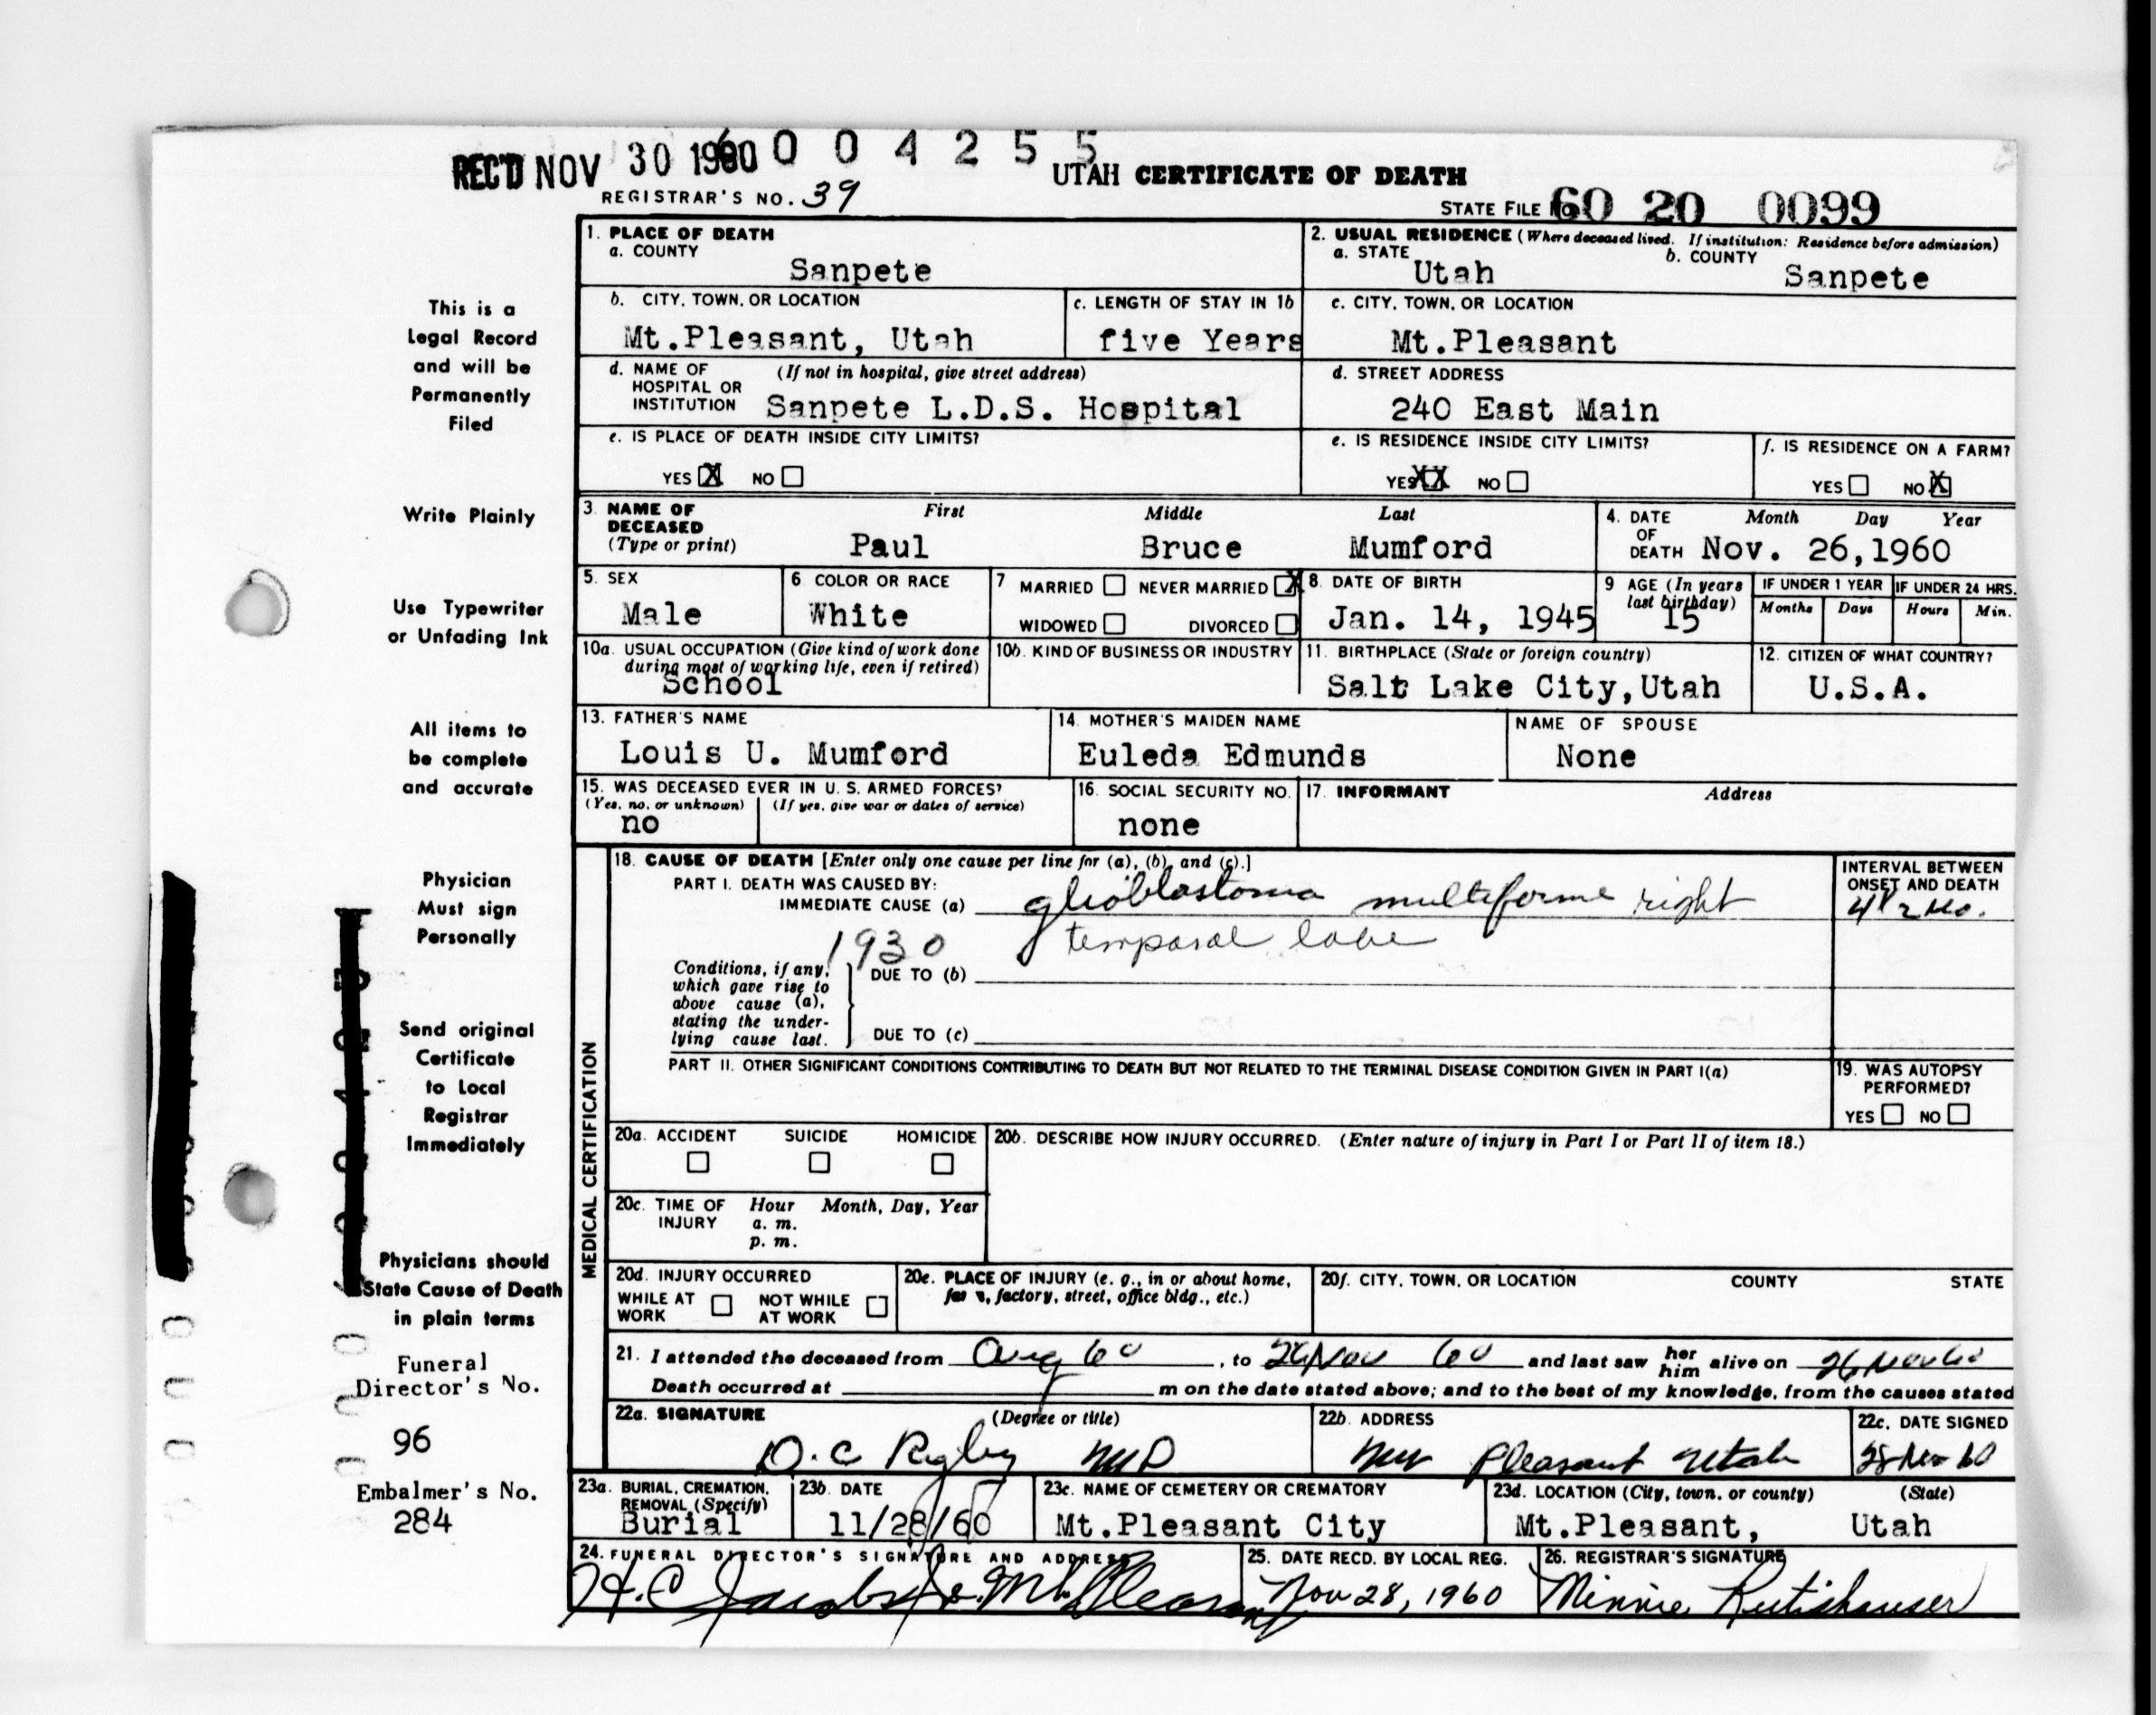 REC'D NOV 30 1960 0 0 4 2 5 5
UTAH CERTIFICATE OF DEATH
REGISTRAR'S NO. 39
STATE FILE 60 20 0099
1. PLACE OF DEATH
a. COUNTY
Sanpete
2. USUAL RESIDENCE (Where deceased lived. If institution: Residence before admission)
a. STATE Utah b. COUNTY Sanpete
b. CITY, TOWN, OR LOCATION
Mt.Pleasant, Utah
c. LENGTH OF STAY IN 1b
five Years
c. CITY, TOWN, OR LOCATION
Mt.Pleasant
d. NAME OF HOSPITAL OR INSTITUTION (If not in hospital, give street address)
Sanpete L.D.S. Hospital
d. STREET ADDRESS
240 East Main
e. IS PLACE OF DEATH INSIDE CITY LIMITS?
YES X NO
e. IS RESIDENCE INSIDE CITY LIMITS?
YES XX NO
f. IS RESIDENCE ON A FARM?
YES NO X
3. NAME OF DECEASED (Type or print)
First Middle Last
Paul Bruce Mumford
4. DATE OF DEATH Month Day Year
Nov. 26,1960
5. SEX
Male
6. COLOR OR RACE
White
7 MARRIED NEVER MARRIED X
WIDOWED DIVORCED
8. DATE OF BIRTH
Jan. 14, 1945
9 AGE (In years last birthday)
15
IF UNDER 1 YEAR
Months Days
IF UNDER 24 HRS.
Hours Min.
10a. USUAL OCCUPATION (Give kind of work done during most of working life, even if retired)
School
10b. KIND OF BUSINESS OR INDUSTRY
11. BIRTHPLACE (State or foreign country)
Salt Lake City,Utah
12. CITIZEN OF WHAT COUNTRY?
U.S.A.
13. FATHER'S NAME
Louis U. Mumford
14. MOTHER'S MAIDEN NAME
Euleda Edmunds
NAME OF SPOUSE
None
15. WAS DECEASED EVER IN U. S. ARMED FORCES?
(Yes, no, or unknown) (If yes, give war or dates of service)
no
16. SOCIAL SECURITY NO.
none
17. INFORMANT Address
MEDICAL CERTIFICATION
18. CAUSE OF DEATH [Enter only one cause per line for (a), (b), and (c).]
PART I. DEATH WAS CAUSED BY:
IMMEDIATE CAUSE (a) glioblastoma multiforme right
1930 temporal lobe
INTERVAL BETWEEN ONSET AND DEATH
Conditions, if any, which gave rise to above cause (a), stating the underlying cause last.
DUE TO (b)
DUE TO (c)
PART II. OTHER SIGNIFICANT CONDITIONS CONTRIBUTING TO DEATH BUT NOT RELATED TO THE TERMINAL DISEASE CONDITION GIVEN IN PART I(a)
19. WAS AUTOPSY PERFORMED?
YES NO
20a. ACCIDENT SUICIDE HOMICIDE
20b. DESCRIBE HOW INJURY OCCURRED. (Enter nature of injury in Part I or Part II of item 18.)
20c. TIME OF INJURY Hour Month, Day, Year
a. m.
p. m.
20d. INJURY OCCURRED
WHILE AT WORK NOT WHILE AT WORK
20e. PLACE OF INJURY (e. g., in or about home, factory, street, office bldg., etc.)
20f. CITY, TOWN, OR LOCATION COUNTY STATE
21. I attended the deceased from Aug 60, to 26 Nov 60 and last saw her him alive on 26 Nov 60
Death occurred at m on the date stated above; and to the best of my knowledge, from the causes stated
22a. SIGNATURE (Degree or title)
O. C Rigby MD
22b. ADDRESS
Mt Pleasant Utah
22c. DATE SIGNED
28 Nov 60
23a. BURIAL, CREMATION, REMOVAL (Specify)
Burial
23b. DATE
11/28/60
23c. NAME OF CEMETERY OR CREMATORY
Mt.Pleasant City
23d. LOCATION (City, town, or county) (State)
Mt.Pleasant, Utah
24. FUNERAL DIRECTOR'S SIGNATURE AND ADDRESS
H. C Jacobs Mt. Pleasant
25. DATE RECD. BY LOCAL REG.
Nov 28, 1960
26. REGISTRAR'S SIGNATURE
Minnie Rutishauser
This is a
Legal Record
and will be
Permanently
Filed
Write Plainly
Use Typewriter
or Unfading Ink
All items to
be complete
and accurate
Physician
Must sign
Personally
Send original
Certificate
to Local
Registrar
Immediately
Physicians should
State Cause of Death
in plain terms
Funeral
Director's No.
96
Embalmer's No.
284